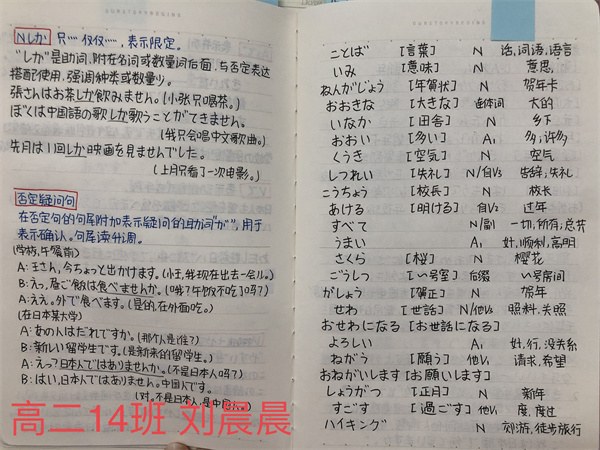 Nしか 只…… 仅仅……, 表示限定。
"しか"是助词, 附在名词或数量词后面, 与否定表达
搭配使用, 强调种类或数量少。
張さんはお茶しか飲みません。(小张只喝茶。)
ぼくは中国語の歌しか歌うことができません。
(我只会唱中文歌曲。)
先月は1回しか映画を見ませんでした。
(上月只看了一次电影。)
否定疑问句
在否定句的句尾附加表示疑问的助词"か", 用于
表示确认。句尾读升调。
(学校, 午餐前)
A: 王さん, 今ちょっと出かけます。(小王, 我现在出去一会儿。)
B: えっ, 昼ご飯は食べませんか。(哦? 午饭不吃了吗?)
A: ええ。外で食べます。(是的, 在外面吃。)
(在日本某大学)
A: あの人はだれですか。(那个人是谁?)
B: 新しい留学生です。(是新来的留学生。)
A: えっ? 日本人ではありませんか。(不是日本人吗?)
B: はい, 日本人ではありません。中国人です。
(对, 不是日本人, 是中国人。)
高二14班 刘晨晨
ことば [言葉] N 话, 词语, 语言
いみ [意味] N 意思,
ねんがじょう [年賀状] N 贺年卡
おおきな [大きな] 连体词 大的
いなか [田舎] N 乡下
おおい [多い] A₁ 多; 许多
くうき [空气] N 空气
しつれい [失礼] N/自V₃ 告辞; 失礼
こうちょう [校長] N 校长
あける [明ける] 自V₂ 过年
すべて N/副 一切, 所有, 总共
うまい A₁ 好, 顺利, 高明
さくら [桜] N 樱花
ごうしつ [~号室] 后缀 ~号房间
がしょう [賀正] N 贺年
せわ [世話] N/他V₃ 照料, 关照
おせわになる [お世話になる]
よろしい A₁ 好, 行, 没关系
ねがう [願う] 他V₁ 请求, 希望
おねがいします [お願いします]
しょうがつ [正月] N 新年
すごす [過ごす] 他V₁ 度, 度过
ハイキング N 郊游, 徒步旅行